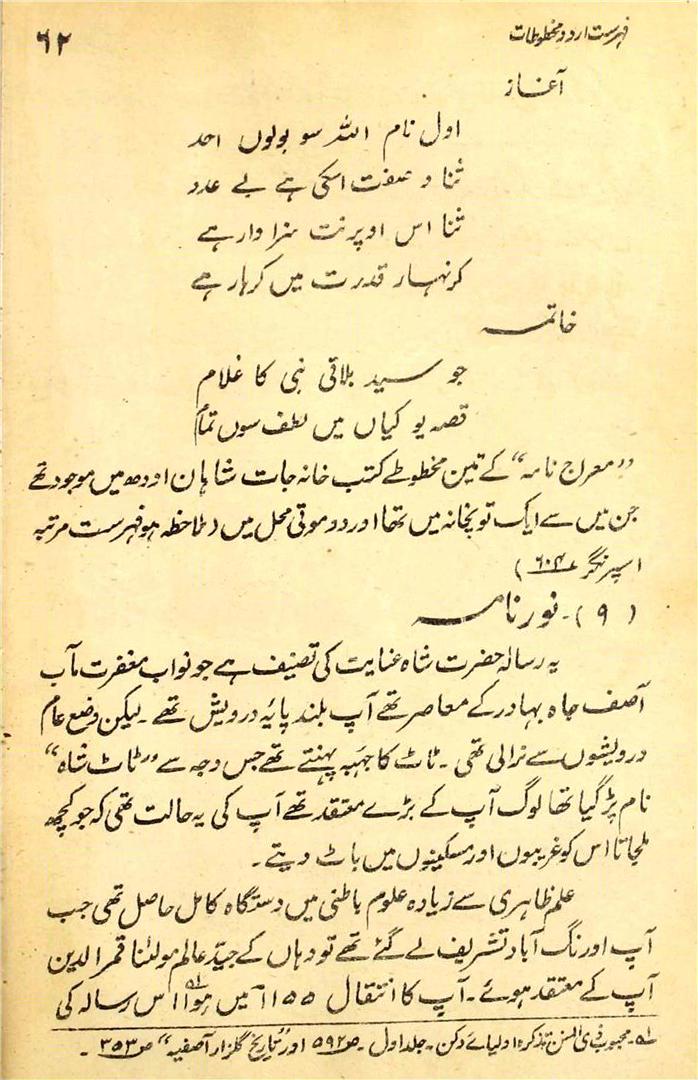 فہرست اردو مخطوطات
۶۲
آغاز
اول نام اللہ سو بولوں احد
ثنا و صفت اسکی ہے بے عدد
ثنا اس اوپر نت سزا وار ہے
کرنہار قدرت میں کرہار ہے
خاتمہ
جو سید بلاقی نبی کا غلام
قصہ یو کیاں میں لطف سوں تمام
"معراج نامہ" کے تین مخطوطے کتب خانہ جات شاہان اودھ میں موجود تھے
جن میں سے ایک توپخانہ میں تھا اور دو موتی محل میں (ملاحظہ ہو فہرست مرتبہ
اسپرنگر ۶۰۴)
(۹)۔ نور نامہ
یہ رسالہ حضرت شاہ عنایت کی تصنیف ہے جو نواب مغفرت مآب
آصف جاہ بہادر کے معاصر تھے آپ بلند پایہ درویش تھے۔ لیکن وضع عام
درویشوں سے نرالی تھی۔ ٹاٹ کا جبہ پہنتے تھے جس وجہ سے "ٹاٹ شاہ"
نام پڑ گیا تھا لوگ آپ کے بڑے معتقد تھے آپ کی یہ حالت تھی کہ جو کچھ
ملجاتا اس کو غریبوں اور مسکینوں میں باٹ دیتے۔
علم ظاہری سے زیادہ علوم باطنی میں دستگاہ کامل حاصل تھی جب
آپ اورنگ آباد تشریف لے گئے تھے تو وہاں کے جیّد عالم مولٰنا قمر الدین
آپ کے معتقد ہوئے۔ آپ کا انتقال ۱۱۵۵ میں ہوا۵۱ اس رسالہ کی
۵۱۔ محبوب ذی المنن تذکرہ اولیائے دکن۔ جلد اول۔ ص۵۹۲ اور "تاریخ گلزار آصفیہ" ص۳۵۳۔